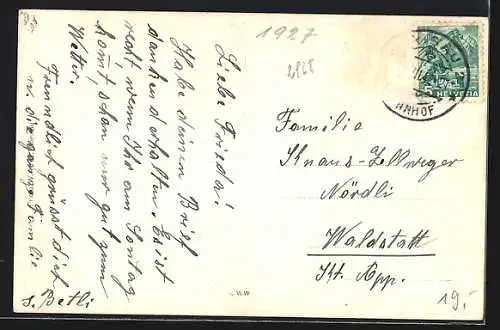 Liebe Frieda!
Habe deinen Brief
dankend erhalten. Es ist
recht, wenn Ihr am Sonntag
kommt, schon wer gut zum
Wetter.
Freundlich grüsst dich
u. die ganze Familie
s. Betli
1927
2828
HELVETIA
5
NHOF
Familie
Knaus-Zellweger
Nördli
Waldstatt
Kt. App.
19.-